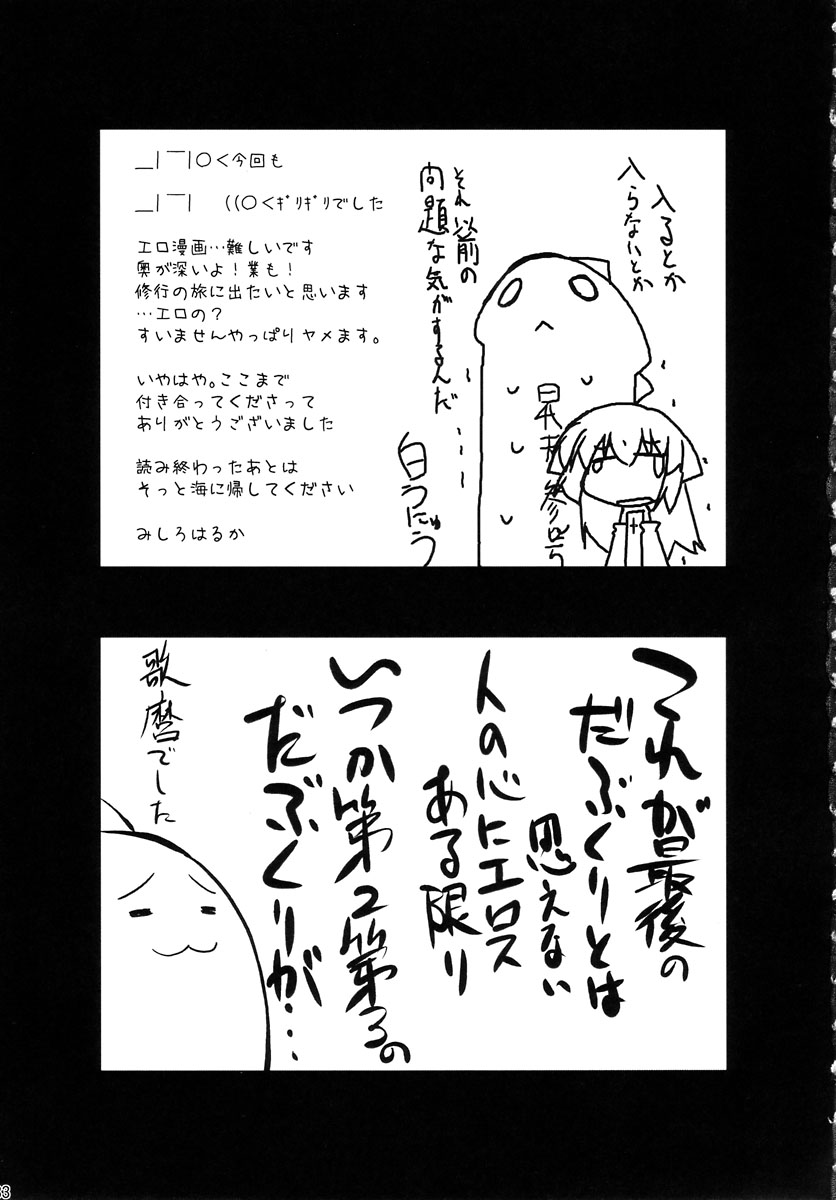 ＿|￣|○＜今回も
＿|￣|　((○＜ｷﾞﾘｷﾞﾘでした
エロ漫画…難しいです
奥が深いよ！業も！
修行の旅に出たいと思います
…エロの？
すいませんやっぱりヤメます。
いやはや。ここまで
付き合ってくださって
ありがとうございました
読み終わったあとは
そっと海に帰してください
みしろはるか
入るとか
入らないとか
それ以前の
問題な気がするんだ……
白うにゅう
これが最後の
だぶくりとは
思えない
人の心にエロス
ある限り
いつか第2第3の
だぶくりが…
歌麿でした